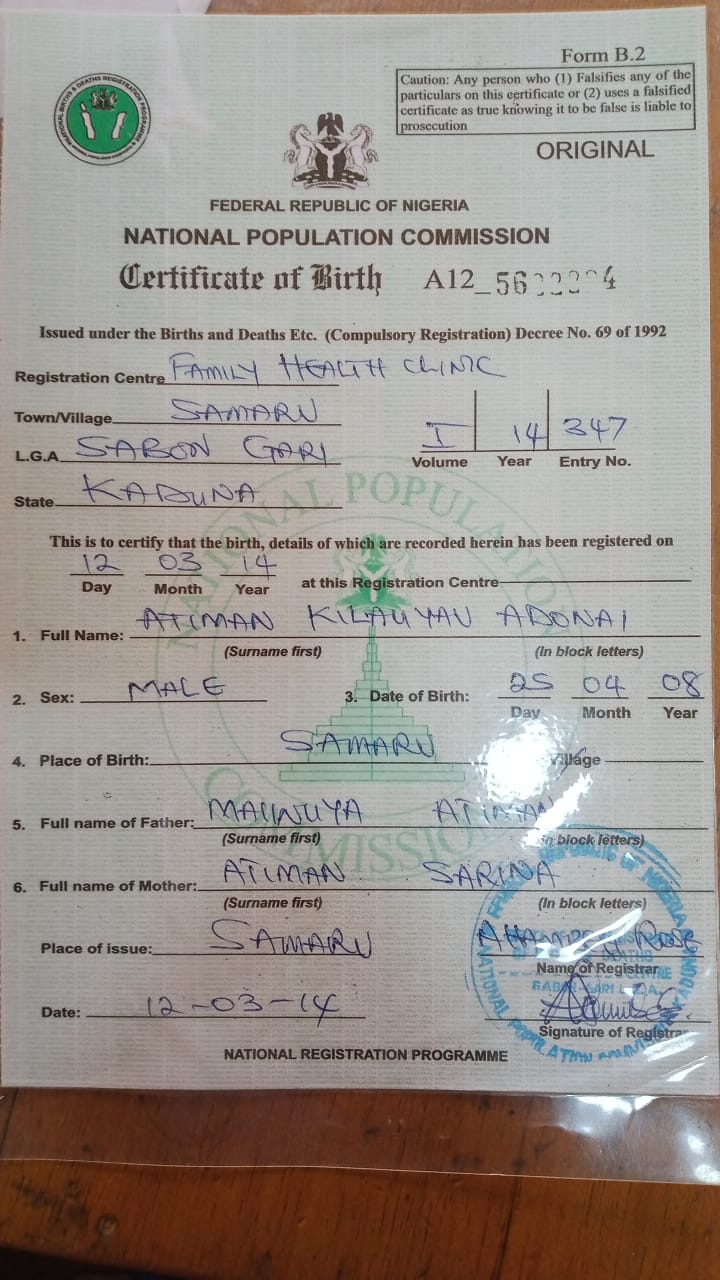 Form B.2
Caution: Any person who (1) Falsifies any of the
particulars on this certificate or (2) uses a falsified
certificate as true knowing it to be false is liable to
prosecution
ORIGINAL
FEDERAL REPUBLIC OF NIGERIA
NATIONAL POPULATION COMMISSION
Certificate of Birth A12_
Issued under the Births and Deaths Etc. (Compulsory Registration) Decree No. 69 of 1992
Registration Centre FAMILY HEALTH CLINIC
Town/Village SAMARU
I 14 347
L.G.A SABON GARI
Volume Year Entry No.
State KADUNA
NATIONAL POPULATION COMMISSION
This is to certify that the birth, details of which are recorded herein has been registered on
12 03 14
Day Month Year at this Registration Centre
1. Full Name: ATIMAN KILAUYAU ADONAI
(Surname first) (In block letters)
2. Sex: MALE 3. Date of Birth: 25 04 08
Day Month Year
4. Place of Birth: SAMARU Village
5. Full name of Father: ATIMAN
(Surname first) (In block letters)
6. Full name of Mother: ATIMAN SARINA
(Surname first) (In block letters)
Place of issue: SAMARU ROSE
Name of Registrar
Date: 12-03-14
Signature of Registrar
NATIONAL REGISTRATION PROGRAMME